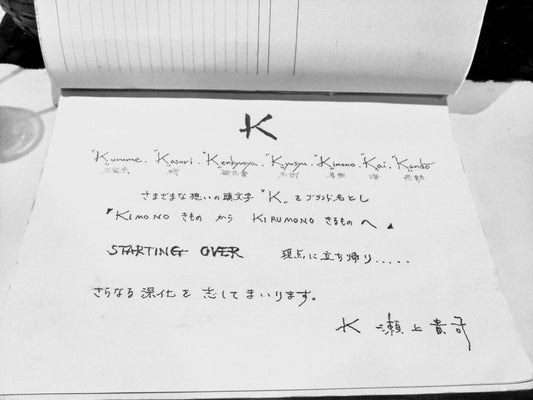 K
"Kurume. "Kasuri. "Kenkyusya. "Kyusyu. "Kimono. "Kai. "Kando
久留米 絣 研究者 九州 着物 感動
さまざまな想いの頭文字 "K" をブランド名とし
「KIMONO きもの から KIRUMONO きるものへ」
STARTING OVER 現点に立ち帰り.....
さらなる深化を志してまいります。
K 瀬上貴司